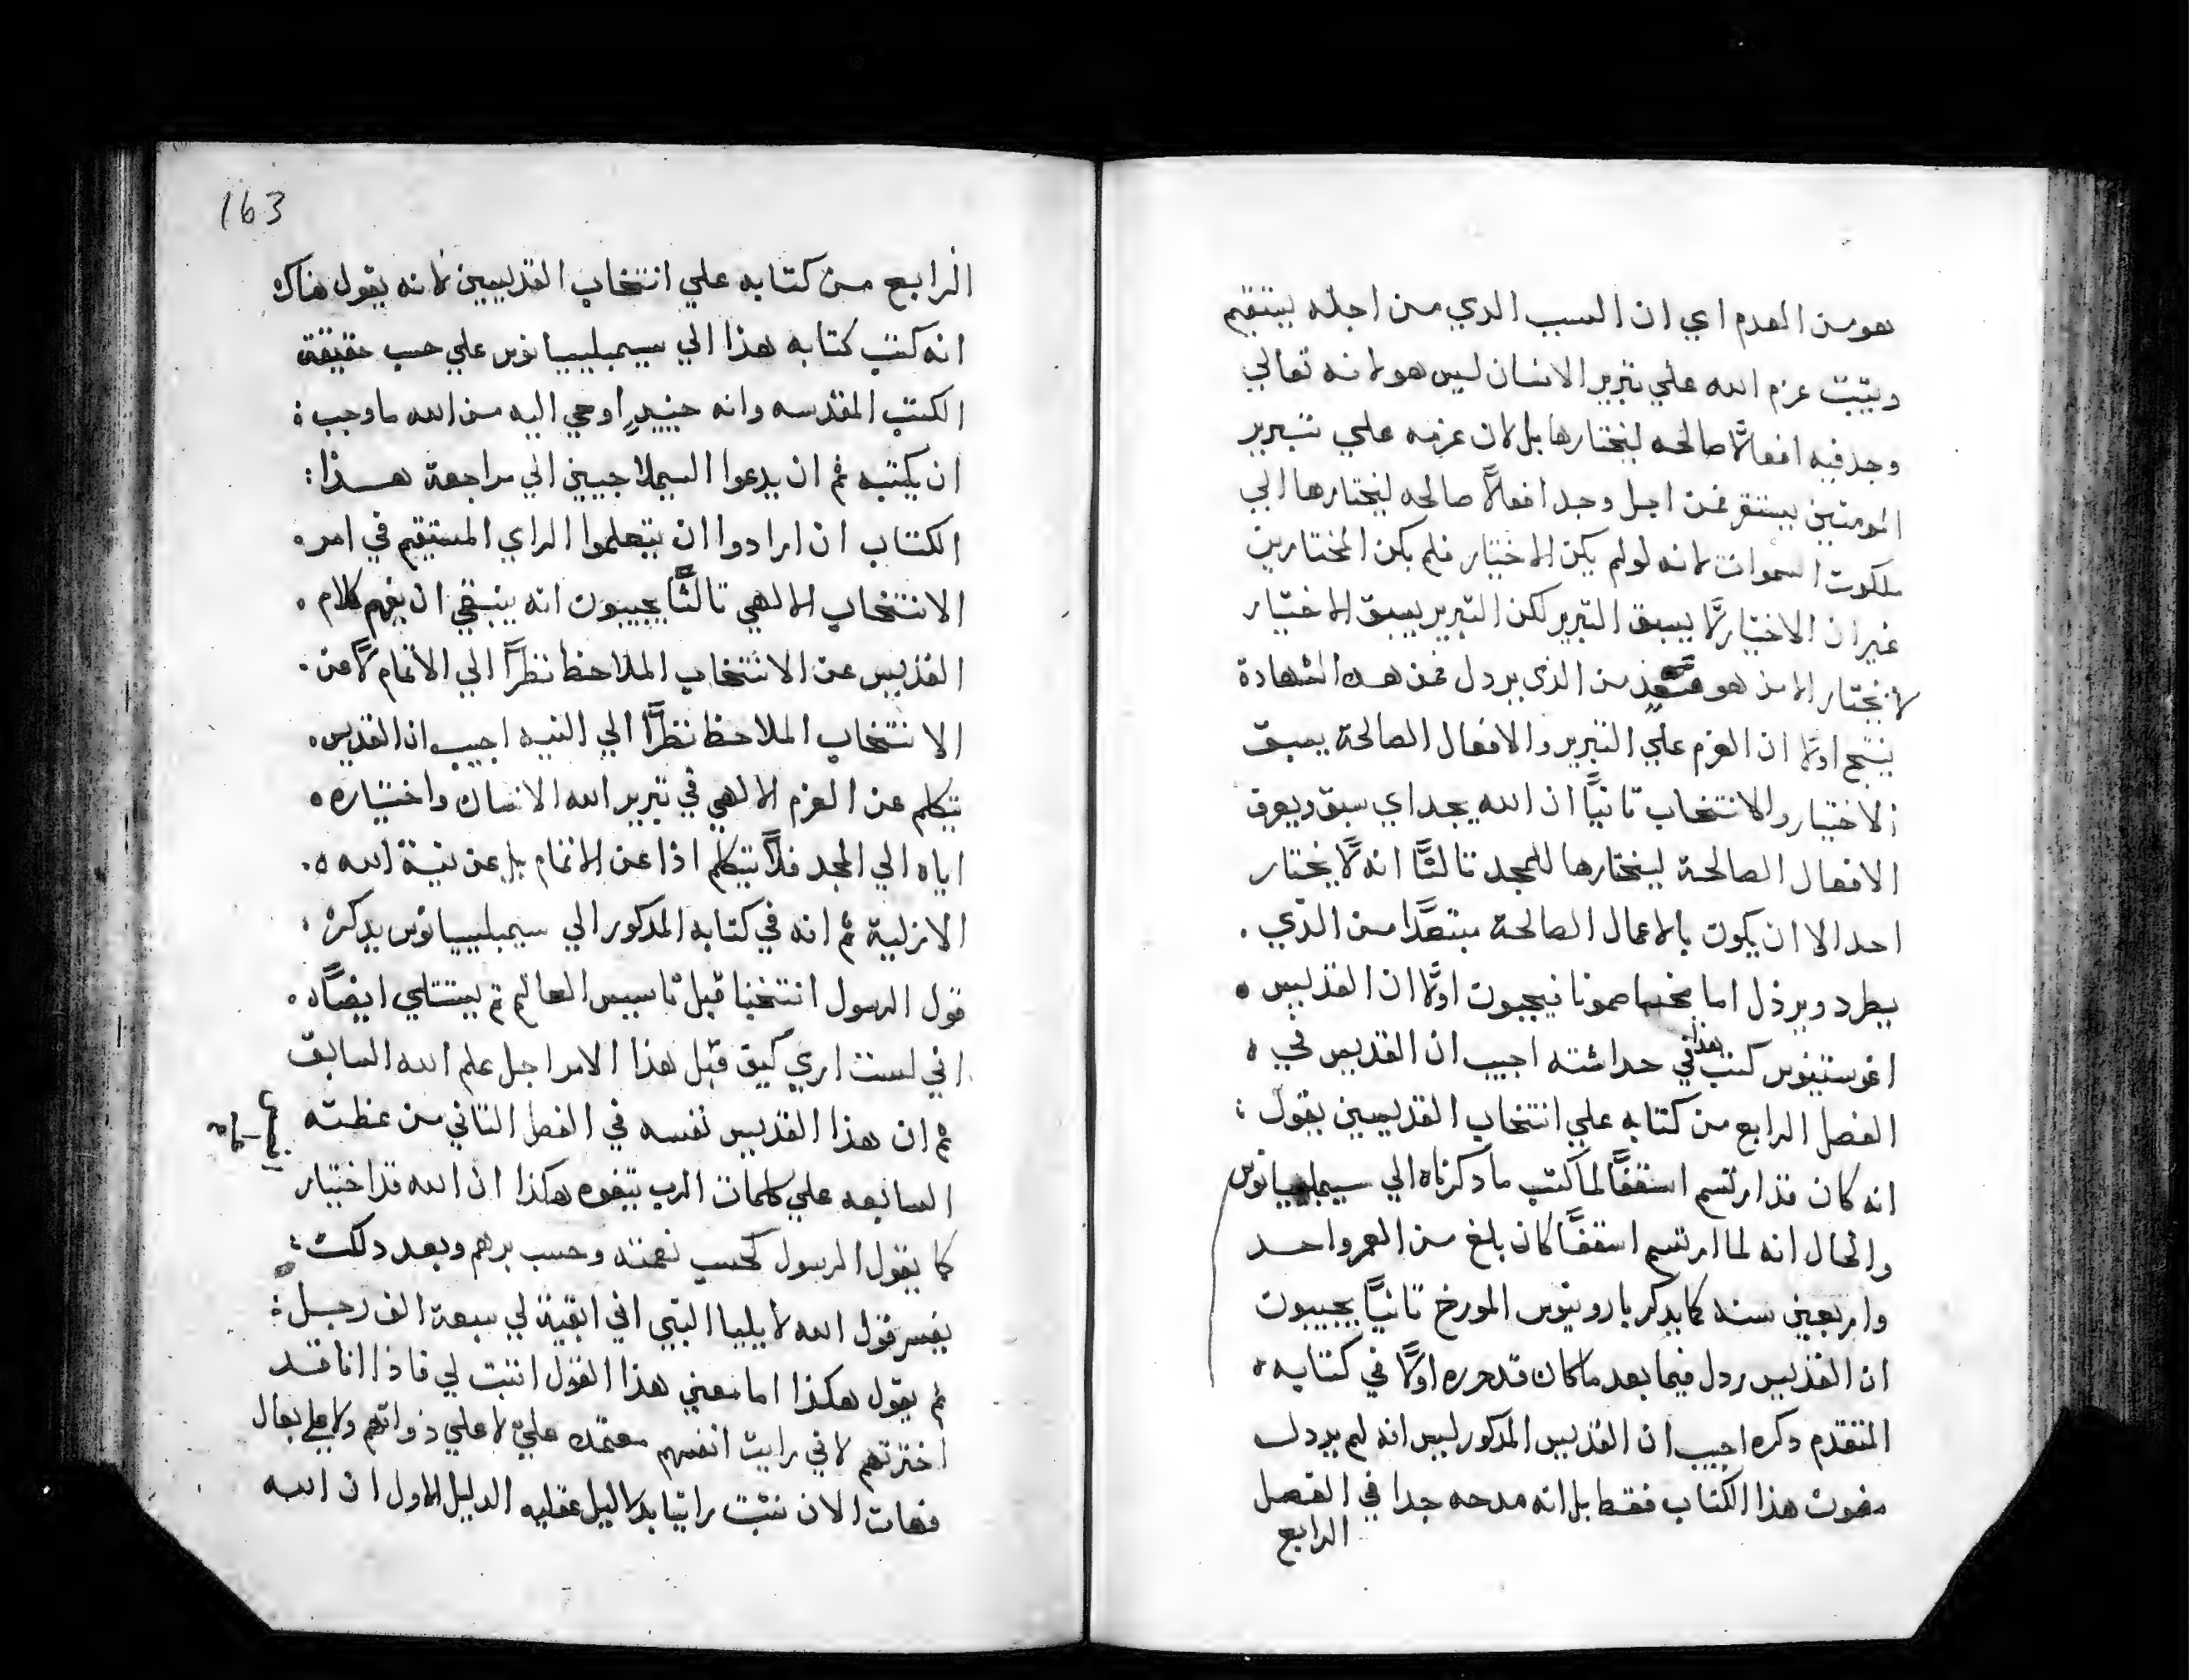 هو من العدم اي ان السبب الدي من اجله يستقيم
ويتبت عزم الله علي تبرير الانسان ليس هو لانه تعالي
وجد فيه افعالًا صالحه ليختارها بل لان عزمه علي تبرير
المومنين يستقر فمن اجل وجد افعالًا صالحه ليختارها الي
ملكوت السموات لانه لو لم يكن الاختيار فلم يكن المختارين
غير ان الاختيار لا يسبق التبرير لكن التبرير يسبق الاختيار
لا يختار الا من هو من الذي يردل فمن هده الشهادة
ينتج اولًا ان العزم علي التبرير والافعال الصالحة يسبق
الاختيار والانتخاب تانيًا ان الله يجد اي سبق ويعرف
الافعال الصالحة ليختارها للمجد تالثًا انه لا يختار
احدالا ان يكون بالاعمال الصالحة مبتعدًا من الذي .
يطرد ويرذل اما مخاصمونا فيجيبون اولًا ان القديس ه
اغوستينوس كتب هذا في حداثته اجيب ان القديس في ه
الفصل الرابع من كتابه علي انتخاب القديسين يقول :
انه كان قد ارتسم اسقفًا لما كتب ما دكرناه الي سيمبليسيانوس
والحال انه لما ارتسم اسقفًا كان بلغ من العمر واحد
واربعين سنه كما يدكر بارونيوس المورخ تانيًا يجيبون
ان القديس ردل فيما بعد ما كان قد حرره اولًا في كتابه ه
المتقدم دكره اجيب ان القديس المدكور ليس انه لم يردل
مضمون هذا الكتاب فقط بل انه مدحه جدا في الفصل
الرابع
163
الرابع من كتابه علي انتخاب القديسين لانه يقول هناك
انه كتب كتابه هذا الي سيمبليسيانوس علي حسب حقيقة
الكتب المقدسه وانه حينيدٍ اوحي اليه من الله ما وجب :
ان يكتبه ثم ان يدعوا السيملاجيين الي مراجعة هذا :
الكتاب ان ارادوا ان يتعلموا الراي المستقيم في امر ه
الانتخاب الالهي تالثًا يجيبون انه ينبغي ان يفهم كلام ه
القديس عن الانتخاب الملاحظ نظرًا الي الاتمام لا عن .
الانتخاب الملاحظ نظرًا الي النيه اجيب ان القديس ه
يتكلم عن العزم الالهي في تبرير الله الانسان واختياره ه
اياه الي المجد فلا يتكلم اذا عن الاتمام بل عن نية الله ه .
الازلية ثم انه في كتابه المدكور الي سيمبليسيانوس يدكر :
قول الرسول انتخبنا قبل تاسيس العالم ثم يستتلي ايضًا ه
اني لست اري كيف قيل هذا الامر اجل علم الله السابق
ثم ان هذا القديس نفسه في الفصل التاني من عظته
السابعه علي كلمات الرب يتفوه هكذا ان الله قد اختيار
كما يقول الرسول كحسب نعمته وحسب برهم وبعد دلك :
يفسر قول الله لايليا النبي اني ابقية لي سبعة الف رجل :
ثم يقول هكذا اما معني هذا القول ابقيت لي فاذا انا قد
اخترتهم لاني رايت انفسهم معتمده عليّ لا علي ذواتهم ولا علي بعال
فهات الان نثبت راينا بدلاليل عقليه الدليل الاول ان الله